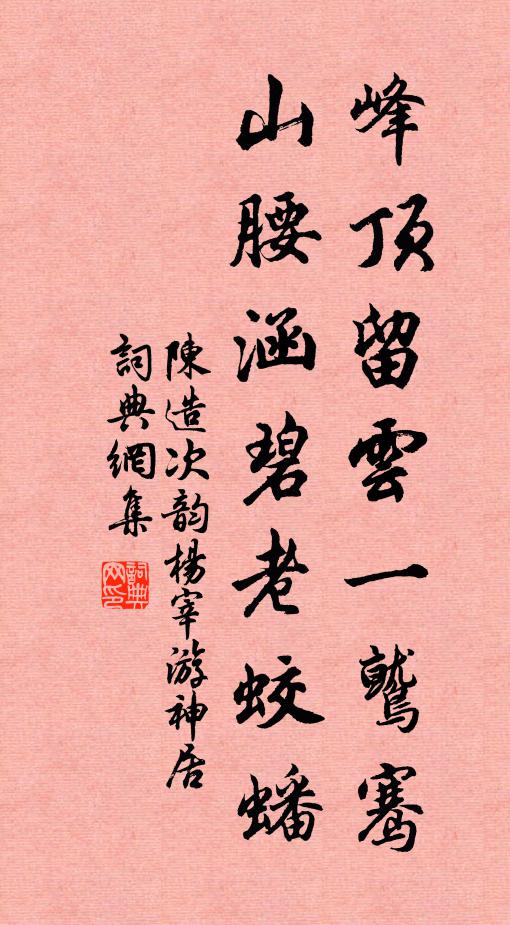 峰頂留雲一鷲騫
山腰涵碧老蛟蟠
陳造次韵楊宰游神居
詞典網集
詞典網印